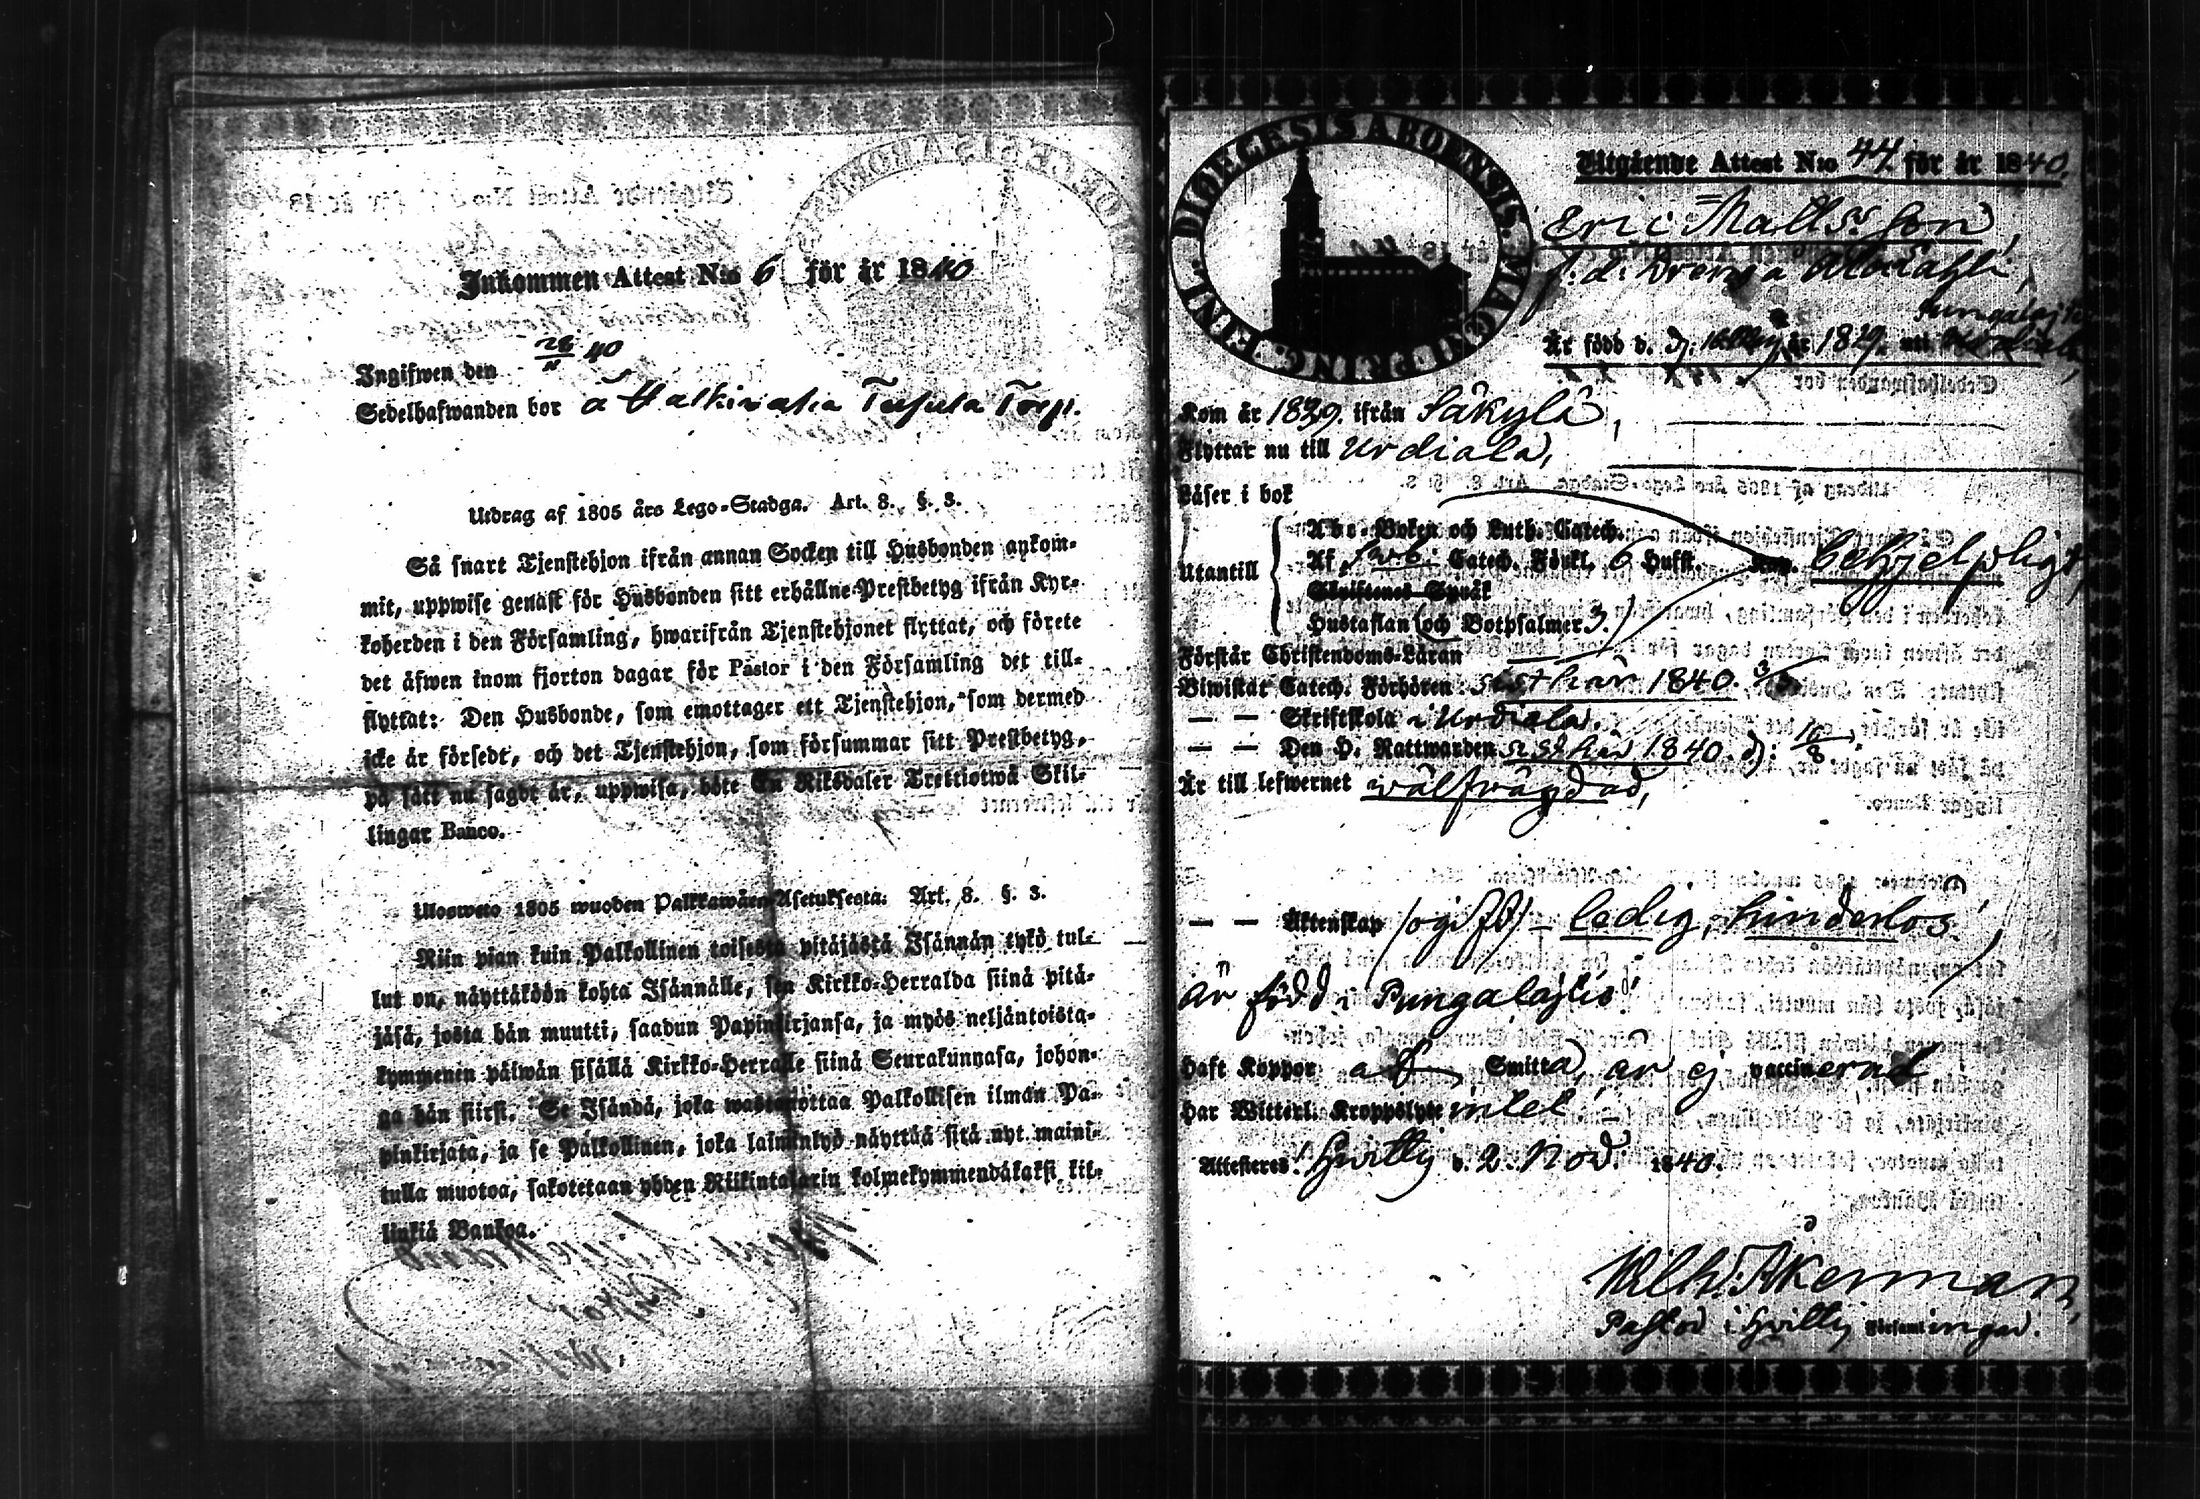 Inkommen Attest N:o 6 för år 1840
Ingifwen den 28/11 40
Sedelhafwanden bor å Torp.
Utdrag af 1805 års Lego-Stadga. Art. 8. §. 3.
Så snart Tjenstehjon ifrån annan Socken till Husbonden ankom-
mit, uppwise genast för Husbonden sitt erhållne Prestbetyg ifrån Kyr-
koherden i den Församling, hwarifrån Tjenstehjonet flyttat, och förete
det äfwen inom fjorton dagar för Pastor i den Församling det till-
flyttat: Den Husbonde, som emottager ett Tjenstehjon, som dermed
icke är försedt, och det Tjenstehjon, som försummar sitt Prestbetyg,
på sätt nu sagdt är, uppwisa, böte En Riksdaler Trettiotwå Skil-
lingar Banco.
Ulosweto 1805 wuoden Palkkawäen-Asetuksesta. Art. 8. §. 3.
Niin pian kuin Palkollinen toisesta pitäjästä Isännän tykö tul-
lut on, näyttäköön kohta Isännälle, sen Kirkko-Herralda siinä pitä-
jäsä, josta hän muutti, saadun Papinkirjansa, ja myös neljäntoista-
kymmenen päiwän sisällä Kirkko-Herralle siinä Seurakunnasa, johon-
ga hän siirsi. Se Isändä, joka wastanottaa Palkollisen ilman Pa-
pinkirjata, ja se Palkollinen, joka laiminlyö näyttää sitä nyt maini-
tulla muotoa, sakotetaan yhden Riikintalarin kolmekymmendäkaksi kil-
linkiä Bankoa.
DIOECESIS ABOENSIS. MAGNI PRINC. FINL.
Utgående Attest N:o 44 för år 1840.
Eric Mattsson,
f. d. dreng å
Pungalajtio
Är född d. år 1829 uti Urdiala,
Kom år 1839 ifrån Säkylä,
Flyttar nu till Urdiala,
Läser i bok
Utantill
Abc-Boken och Luth. Catech.
Af Catech. Förkl. 6 Hufst. Kap. behjelpligt,
Skriftenes Språk
Hustaflan (och Botpsalmer 3.)
Förstår Christendoms-Läran
Biwistat Catech. Förhören sist här 1840. 3/3.
— — Skriftskola i Urdiala.
— — Den H. Nattwarden sist här 1840. d: 16/8.
Är till lefwernet wälfrägdad,
— — Äktenskap (ogift) – ledig, hinderlös!
är född i Pungalajtio!
Haft Koppor af Smitta, är ej vaccinerad
Har Witterl. Kroppslyte intet!
Attesteras! Hvittis d. 2. Nov. 1840.
Wilh. Åkerman,
Pastor i Hvittis Församlingar.